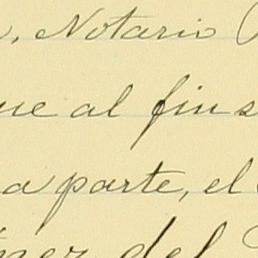 , Notario
ue al fin s
a parte, el
del